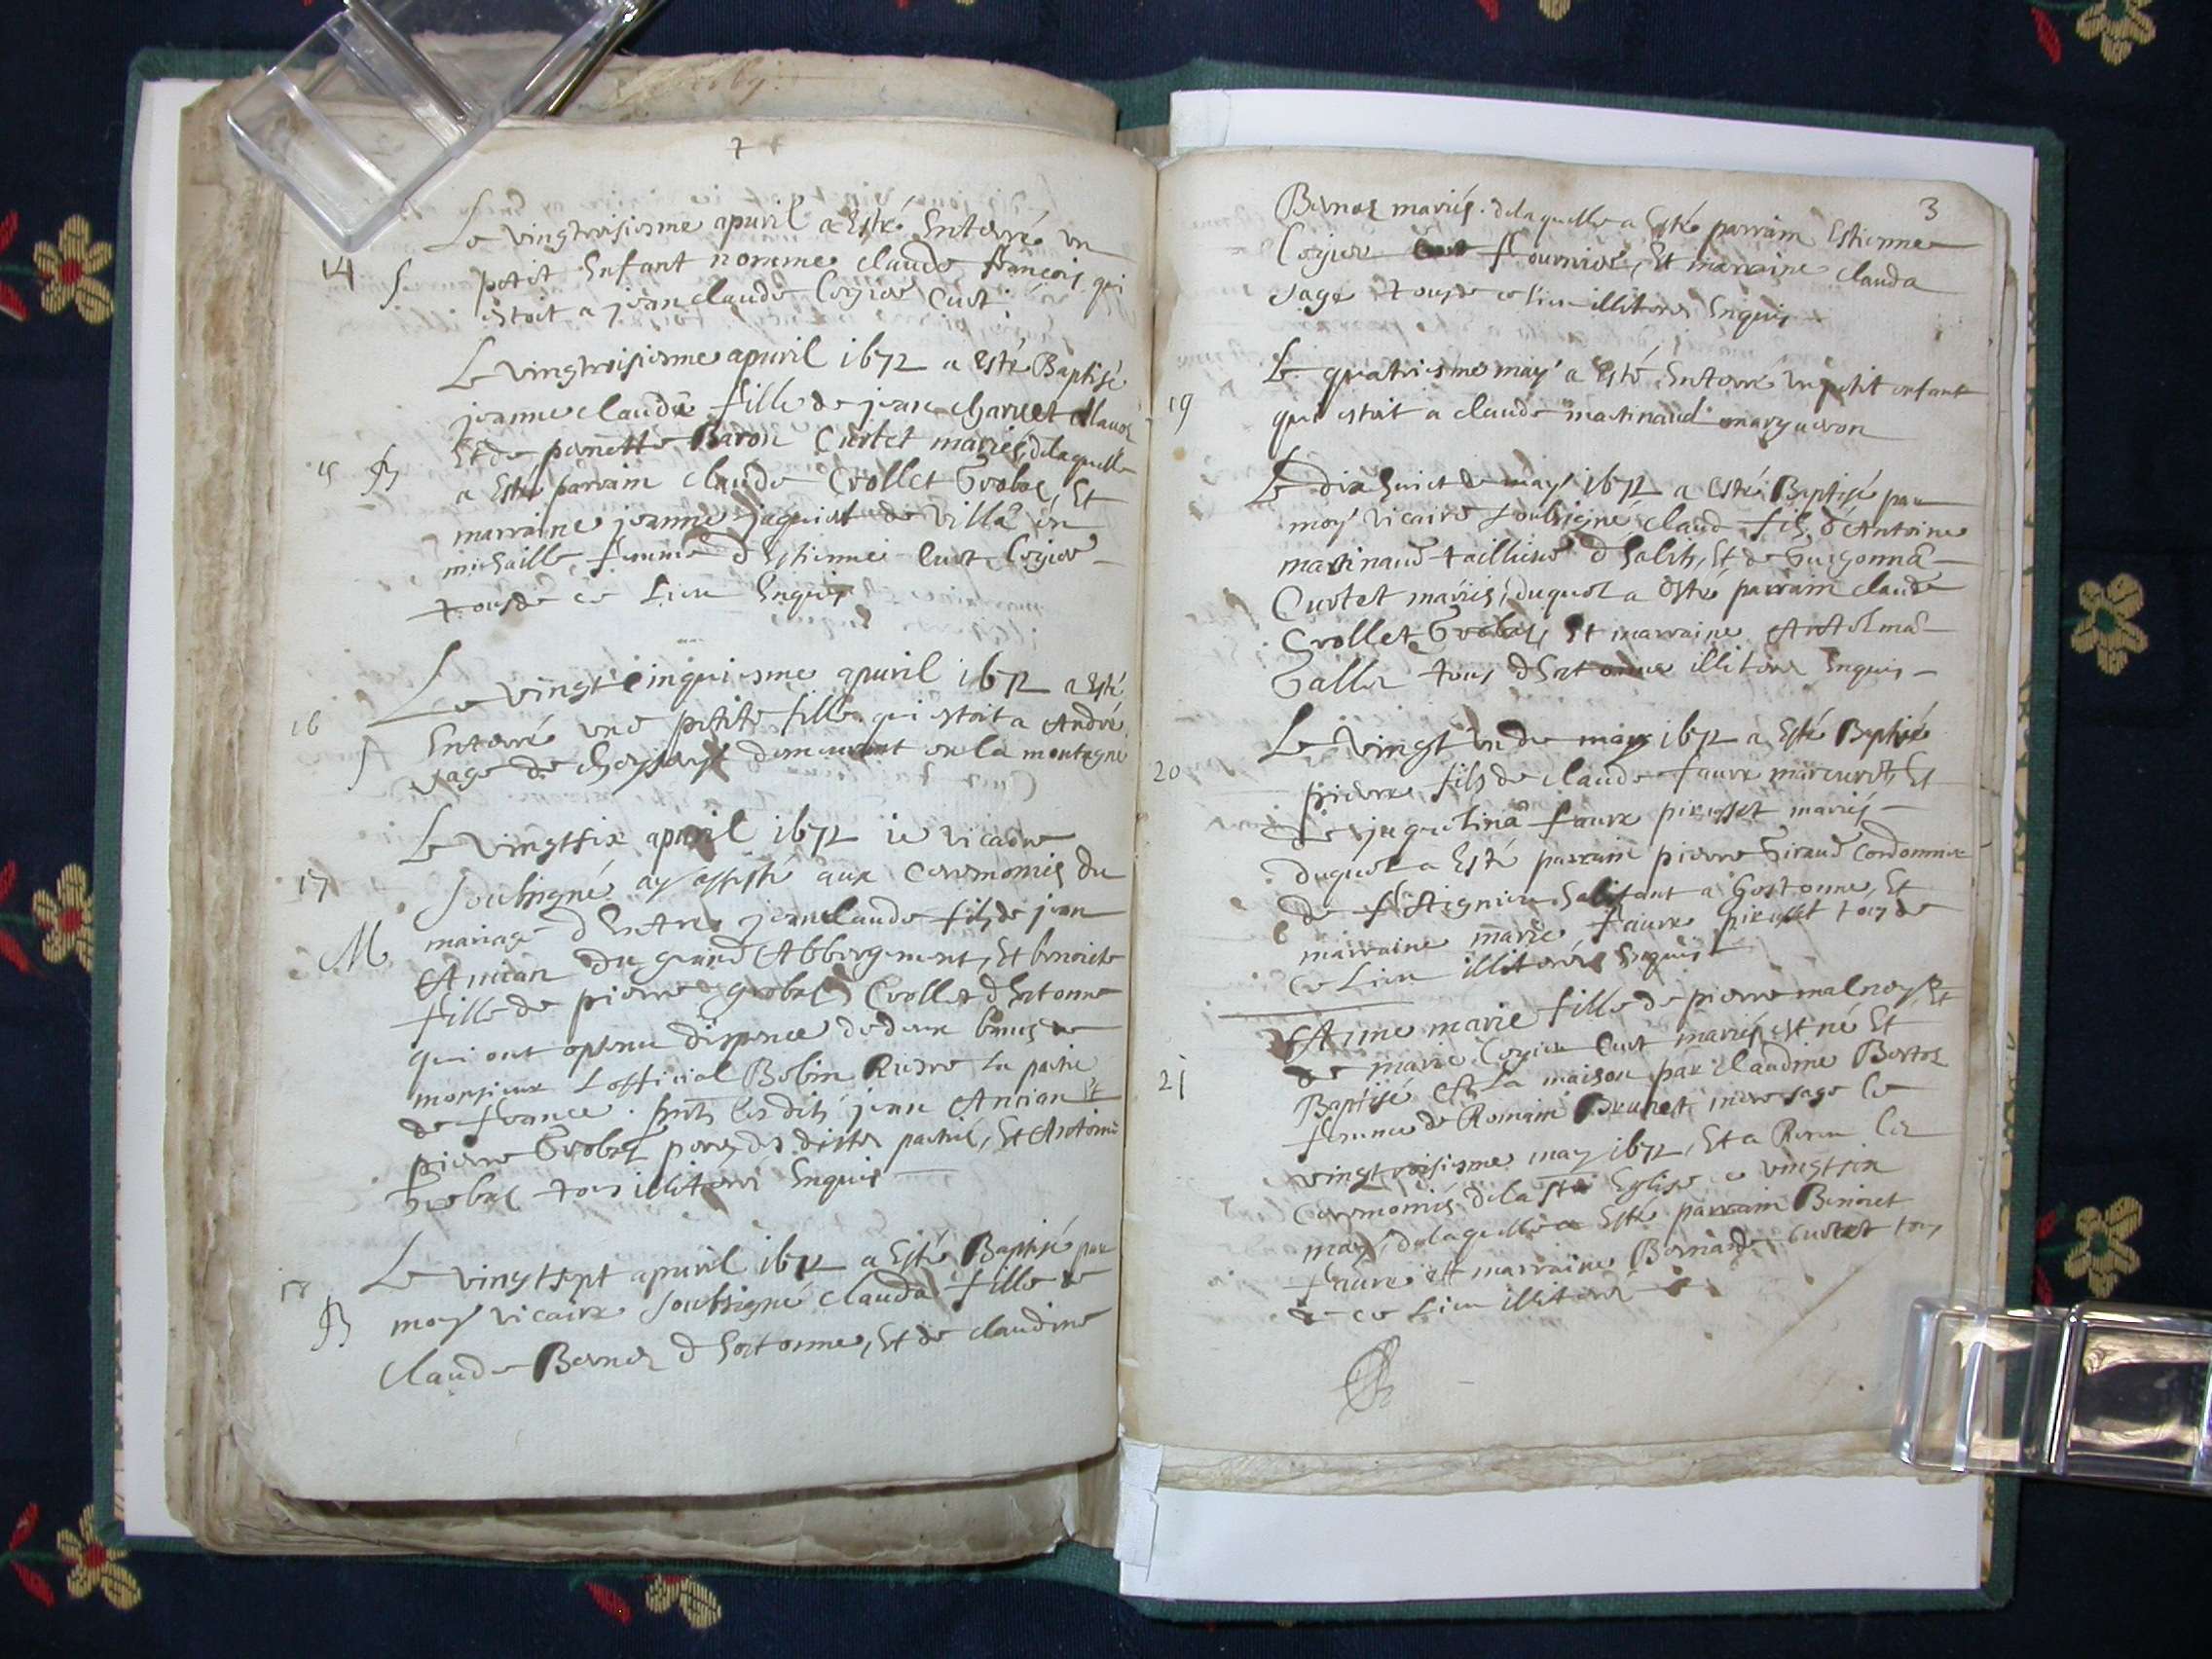 Le vingtroisiesme apuril a Esté Enterré un
14 S. petit Enfant nommé claude françois qui
estoit a jean claude Cogier Curt
Le vingtroisiesme apuril 1672 a esté Baptisé
jeanne claude fille de jean charuet
15 B Et de pernette Baron Curtet mariés, delaquelle
a Esté parrain claude Crollet Grobas, Et
marraine jeanne jaquiot de villa en
michaille femme d Estienne Curt Cogier
tous de ce Lieu Enquis
Le vingt cinquiesme apuril 1672 a esté
16 Enterré une petite fille qui estoit a André
S sage de demeurant en la montagne
Le vingtsix apuril 1672 ie vicaire
17 soubsigné ay assisté aux Ceremonies du
M mariage d Entre jeanclaude filz de jean
Ancian du grand Abbergement, Et benoiste
fille de pierre grobas Crollet d hotonne
qui ont optenu dispence de deux bancs de
monsieur L official Bobin Riere la partie
de france. pnts lesdits jean Ancian Et
pierre Grobas peres des dittes parties, Et Antoine
Grobas tous illiteres Enquis
Le vingtsept apuril 1672 a Esté Baptisé par
18 B moy vicaire soubsigné clauda fille de
Claude d hotonne, Et de claudine
3
mariés. delaquelle a Esté parrain Estienne
Cogier Curt fournier, Et marraine clauda
sage tous de ce lieu illiteres Enquis
Le quatriesme may a Esté Enterré un petit enfant
19 qui estoit a claude martinand margueron
Le dix huict de may 1672 a esté Baptisé par
moy vicaire soubsigné claud filz d Antoine
martinand tailleur d habitz, Et de Guigonna
Curtet mariés, duquel a Esté parrain claude
Crollet Grobas, Et marraine Antelma
tous d hotonne illiteres Enquis
Le vingt un de may 1672 a Esté Baptisé
20 pierre filz de claude faure Et
de jaquelina faure mariés
duquel a Esté parrain pierre Giraud Cordonnier
de habitant a hostonne, Et
marraine marie faure tous de
ce Lieu illiteres Enquis
Anne marie fille de pierre malnoy, Et
de marie Cogier Curt mariés est né Et
21 Baptisé En la maison par claudine
femme de Romain Brunet mere sage le
vingt troisiesme may 1672, Et a Receu les
ceremonies dela ste Eglise ce vingtsix
may, delaquelle a Esté parrain Benoict
faure et marraine Bernarde Curtet tous
de ce Lieu illiteres